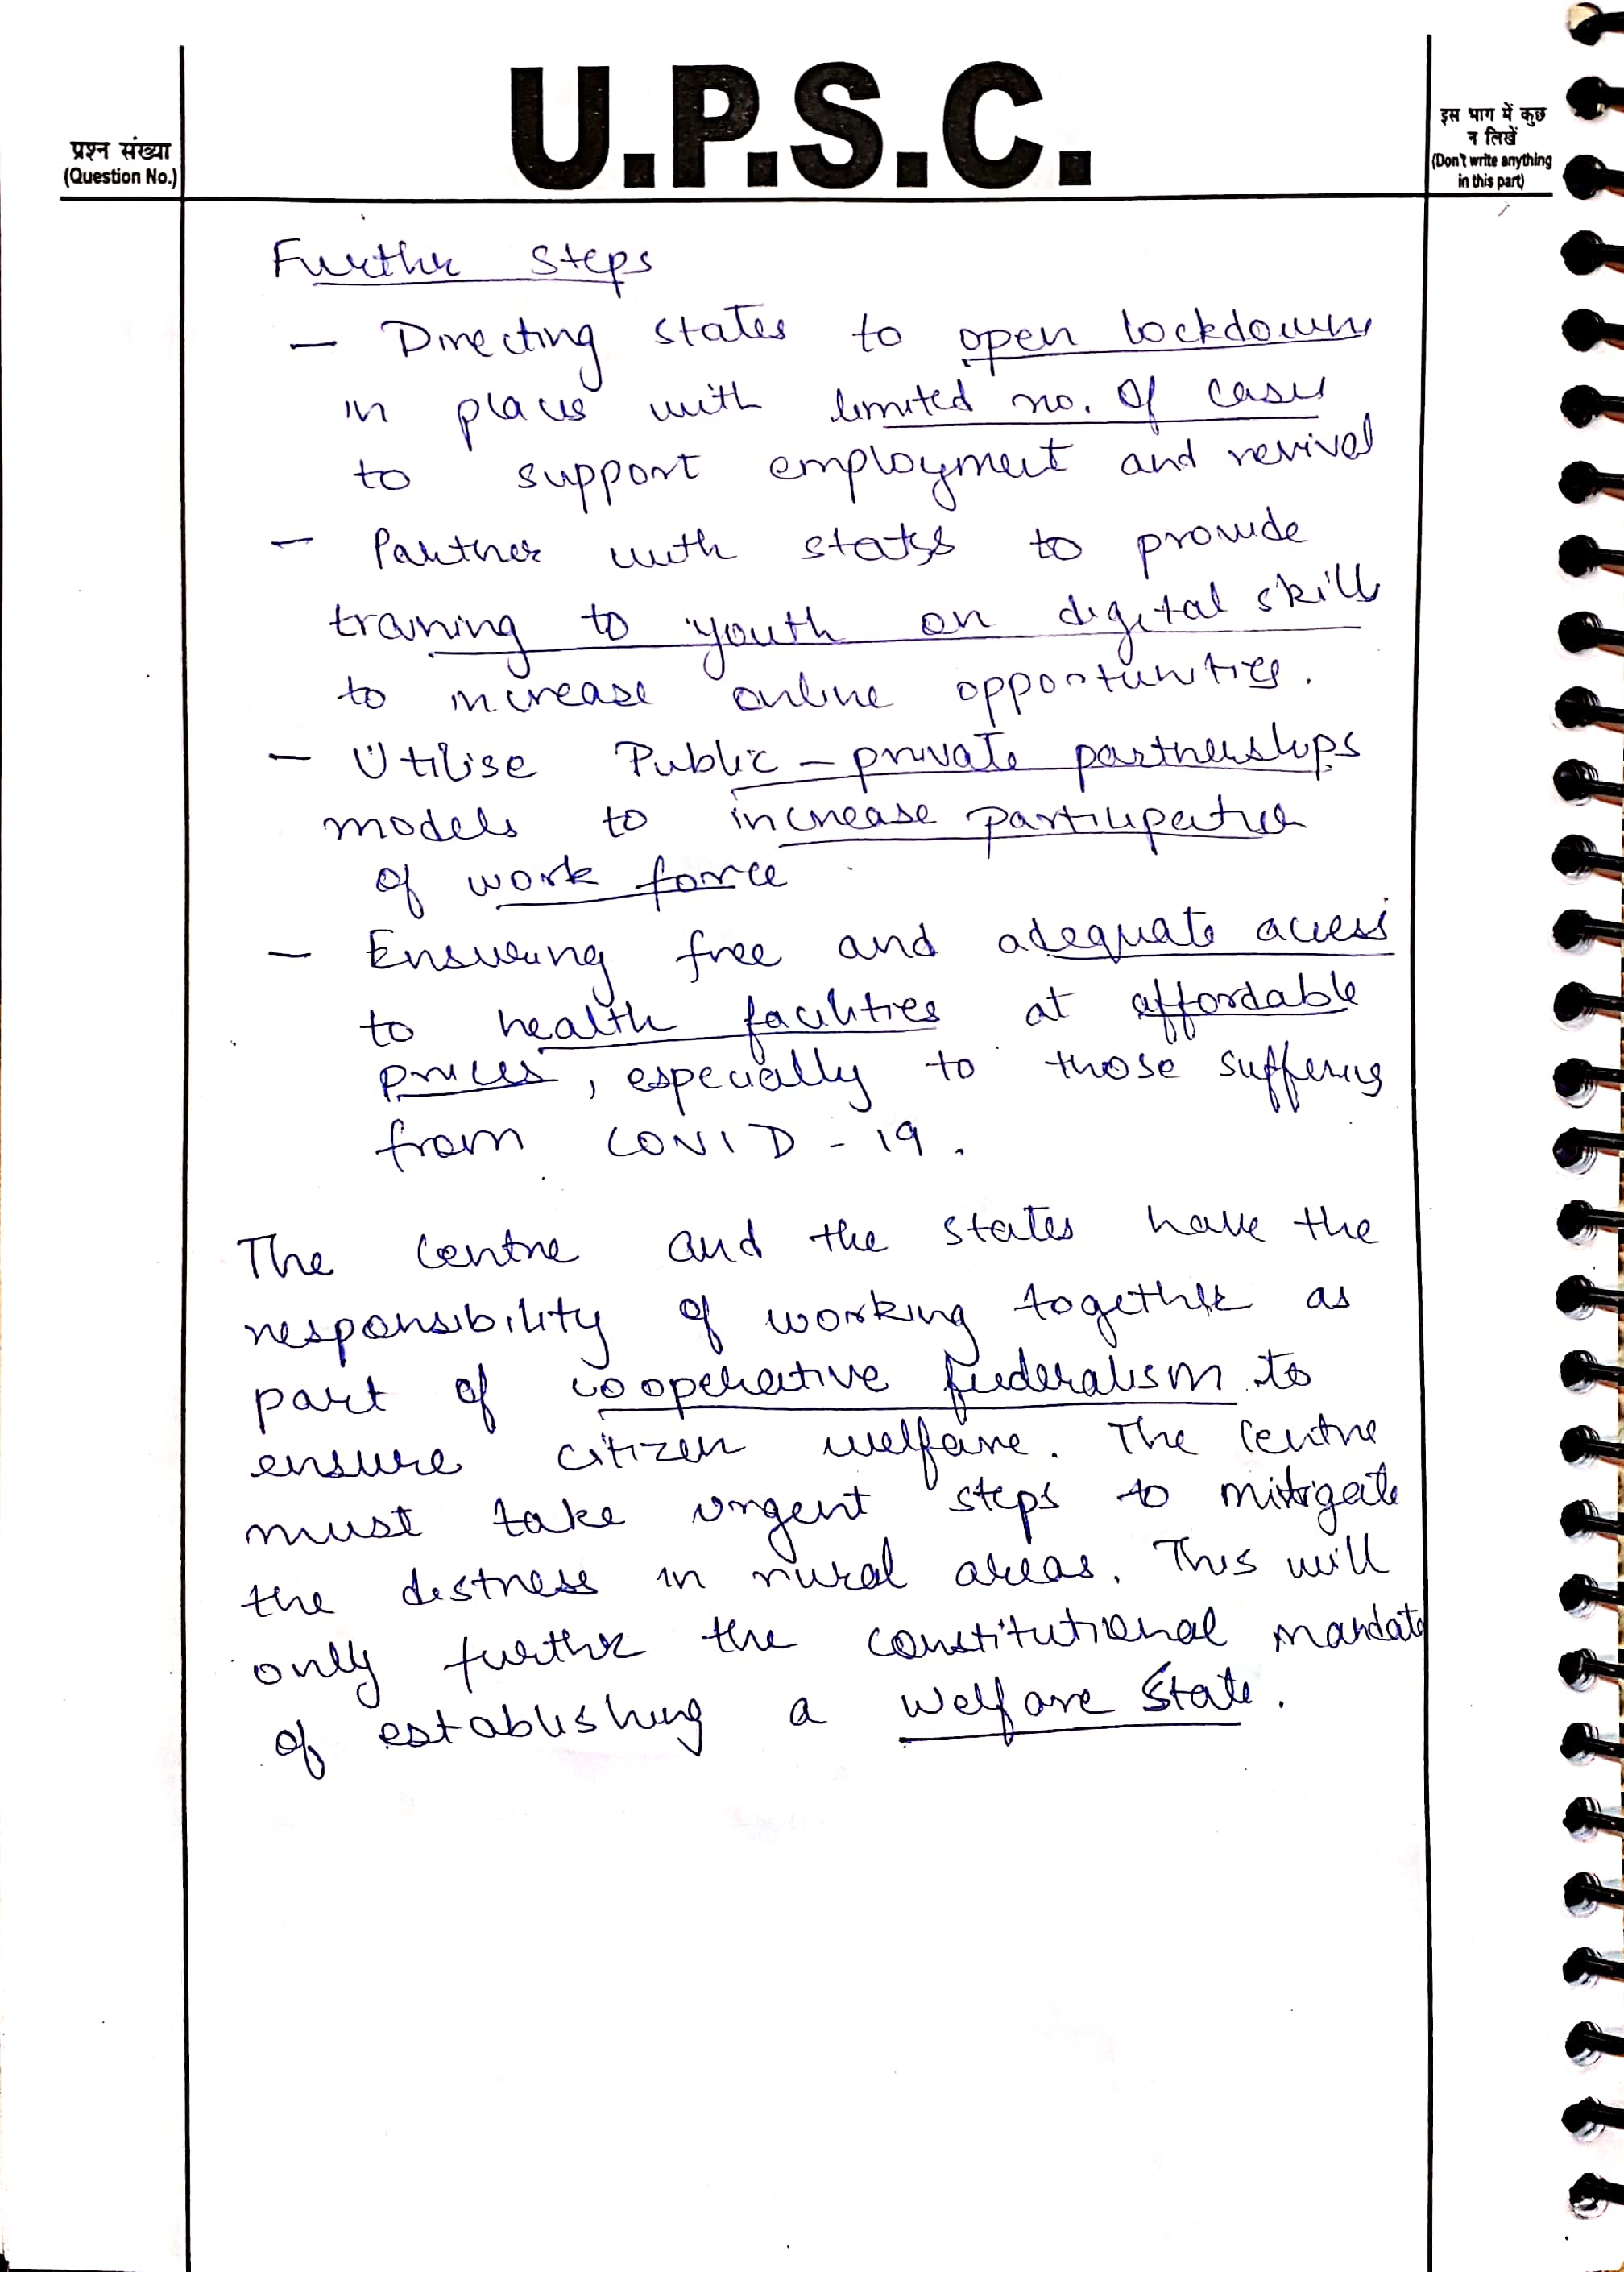 U.P.S.C.
प्रश्न संख्या
(Question No.)
इस भाग में कुछ
न लिखें
(Don't write anything
in this part)
Further steps
— Directing states to open lockdowns
in places with limited no. of cases
to support employment and revival
— Partner with states to provide
training to youth on digital skills
to increase online opportunities.
— Utilise Public – private partnerships
models to increase participation
of work force
— Ensuring free and adequate access
to health facilities at affordable
prices, especially to those suffering
from COVID - 19.
The Centre and the states have the
responsibility of working together as
part of cooperative federalism to
ensure citizen welfare. The Centre
must take urgent steps to mitigate
the distress in rural areas. This will
only further the constitutional mandate
of establishing a Welfare State.